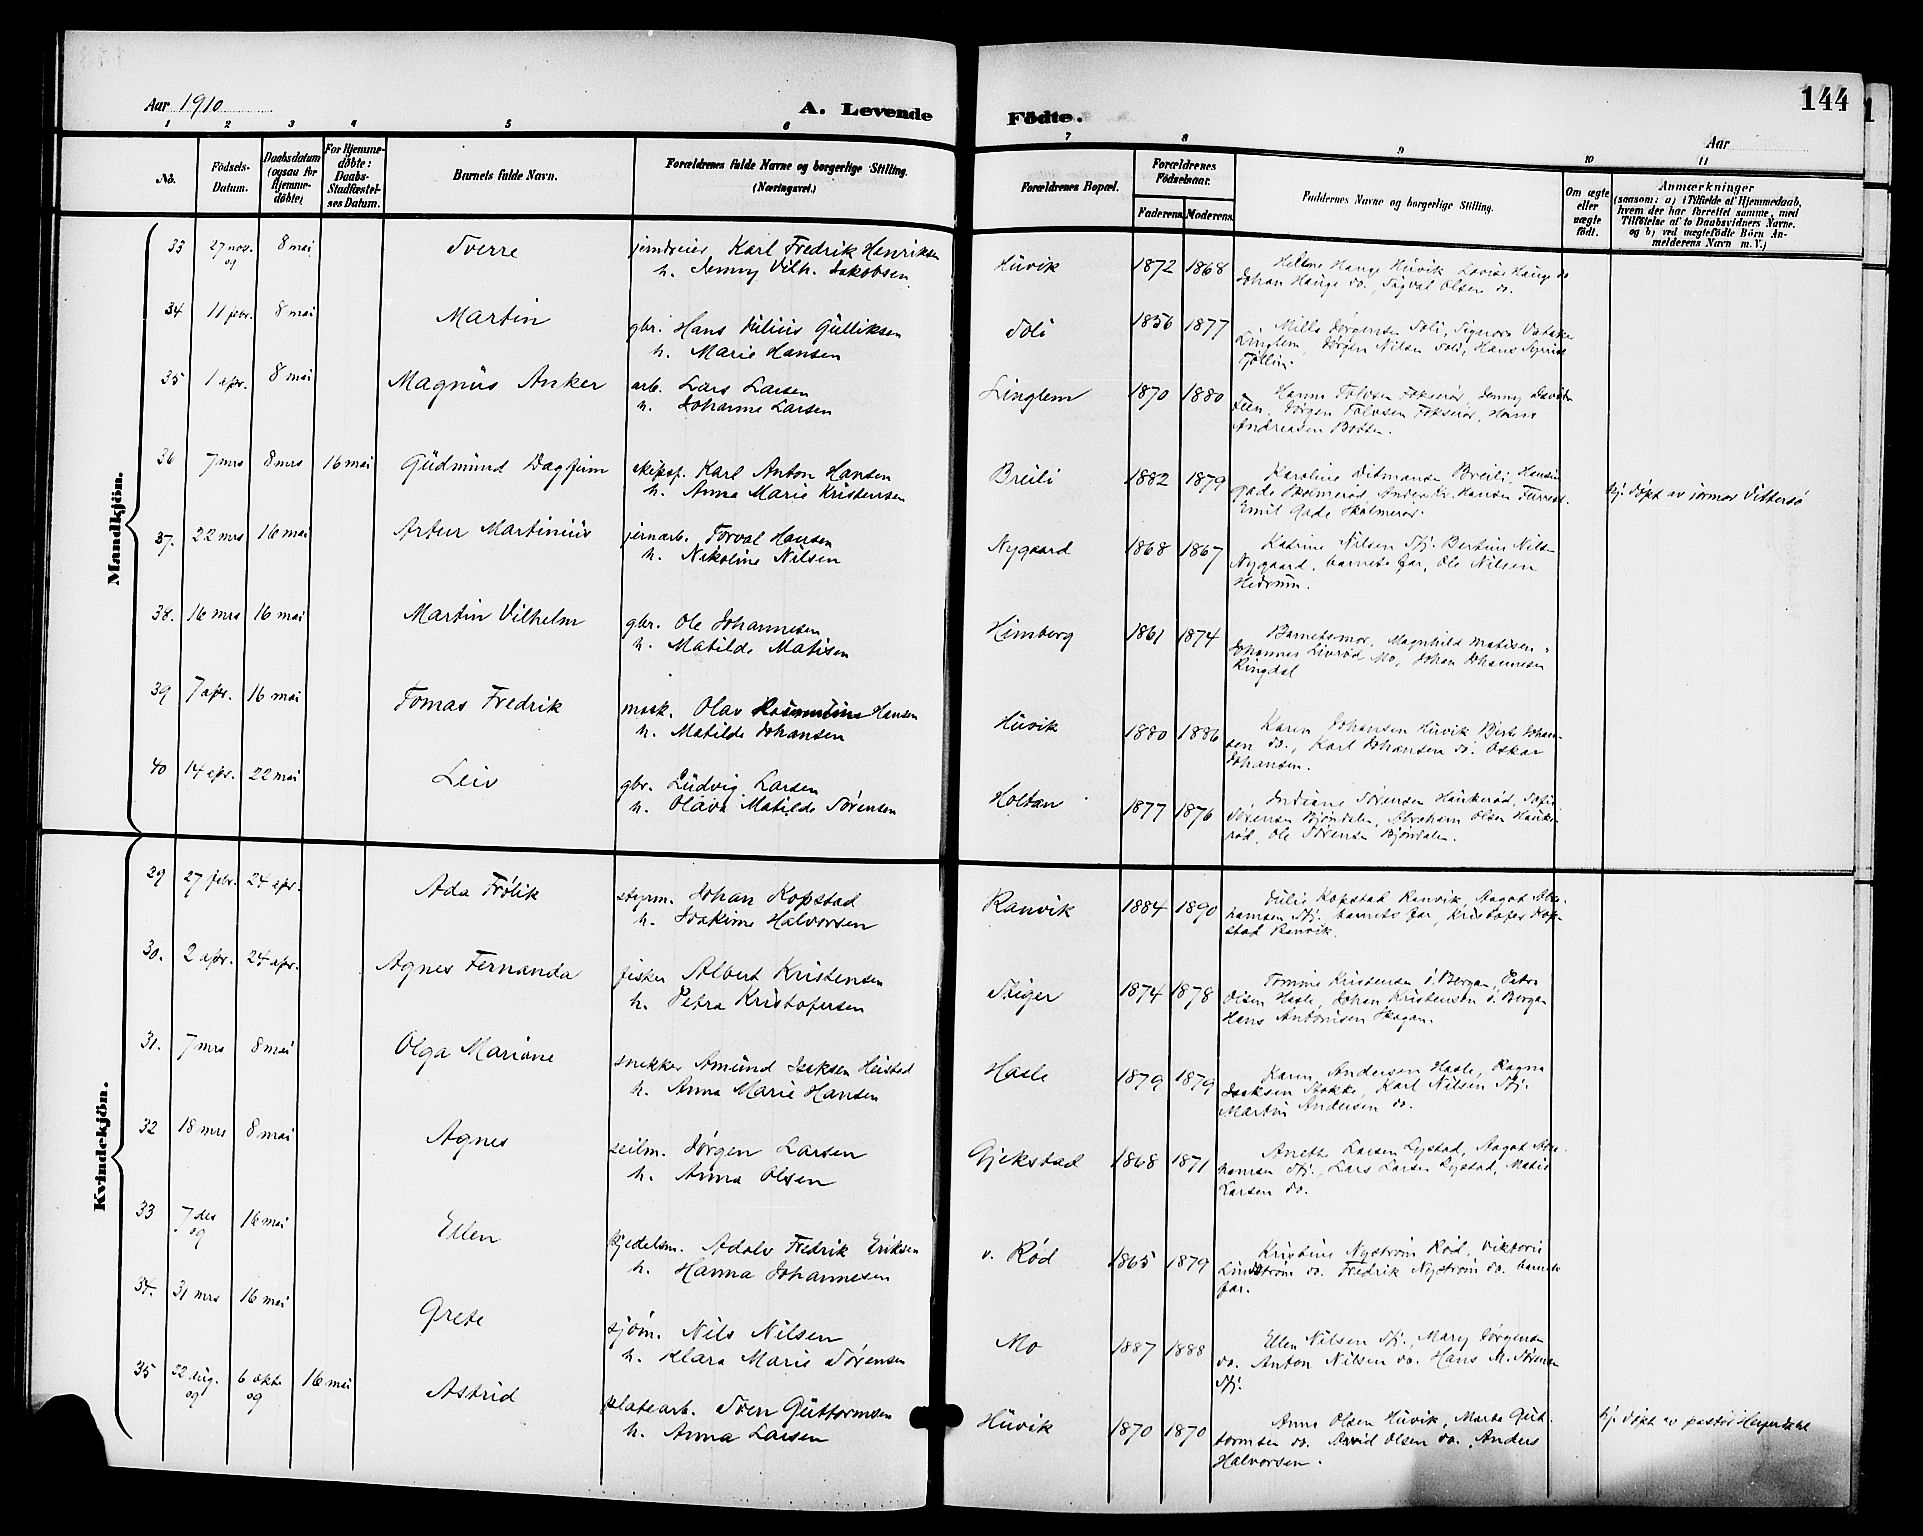 144
Aar 1910
A. Levende
Fødte.
Aar
1 2 3 4 5 6 7 8 9 10 11
No.
Fødsels-
Datum.
Daabsdatum
(ogsaa for
Hjemme-
døbte)
For Hjemme-
døbte:
Daabs-
Stadfæstel-
ses Datum.
Barnets fulde Navn.
Forældrenes fulde Navne og borgerlige Stilling.
(Næringsvei.)
Forældrenes Bopæl.
Forældrenes
Fødselsaar.
Faderens. Moderens.
Faddernes Navne og borgerlige Stilling.
Om ægte
eller
uægte
født.
Anmærkninger
(saasom: a) i Tilfælde af Hjemmedaab,
hvem der har forrettet samme, med
Tilføielse af to Daabsvidners Navne.
og b) ved uægtefødte Børn An-
melderens Navn m. V.)
Mandkjön.
33 27 nov. 8 mai Sverre jerndreier Karl Fredrik Henriksen Huvik 1872 1868
09 h. Jenny Vilh. Jakobsen Johan Hauge do., Sigval Olsen do.
34 11 febr. 8 mai Martin gbr. Hans Julius Gulliksen Soli 1856 1877
h. Marie Hansen Jørgen Nilsen Soli, Hans
35 1 apr. 8 mai Magnus Anker arb. Lars Larsen Linglem 1870 1880
h. Johanne Larsen
Andreasen Botten.
36 7 mrs 8 mrs 16 mai Gudmund Dagfinn skipsp. Karl Anton Hansen Breili 1882 1879 Karoline Ditmansen Breili, hj. døpt av jormor Vittersø
h. Anna Marie Kristensen
Emil Gade Skolmerød.
37. 22 mrs 16 mai Artur Martinius jernarb. Torval Hansen Nygaard 1868 1867 Katrine Nilsen Stj. Bertine Nilsen
h. Nikoline Nilsen Nygaard, barnets far, Ole Nilsen
Hedrum.
38. 16 mrs 16 mai Martin Vilhelm gbr. Ole Johannesen Himberg 1861 1874 Barnets mor, Magnhild Matisen
h. Matilde Matisen Johannes Livrød Mo, Johan Johannesen
Ringdal
39 7 apr. 16 mai Tomas Fredrik mask. Olav Hansen Huvik 1880 1886 Karen Johansen Huvik Berte Johan-
h. Matilde Johansen sen do., Karl Johansen do. Oskar
Johansen.
40 14 apr. 22 mai Leiv gbr. Ludvig Larsen Holtan 1877 1876 Indiane Sørensen Haukerød, Sofie
h. Olava Matilde Sørensen Sørensen Bjøndalen, Abraham Olsen Hauke-
rød, Ole Sørensen Bjøndalen.
Kvindekjön.
29 27 febr. 24 apr. Ada Frølik styrm. Johan Kopstad Ranvik 1884 1890 Julie Kopstad Ranvik, Aagot Abra-
h. Joakime Halvorsen hamsen Stj. barnets far, Kristofer Kop-
stad Ranvik.
30. 2 apr. 24 apr. Agnes Fernanda fisker Albert Kristensen Stiger 1874 1878 Tomine Kristensen ø. Bergan, Petra
h. Petra Kristofersen Olsen Hasle, Johan Kristensen ø. Bergan
Hans Antonisen Skogan.
31. 7 mrs 8 mai Olga Mariane snekker Amund Isaksen Heistad Hasle 1879 1879 Karen Andersen Hasle, Ragna
h. Anna Marie Hansen Isaksen Stokke, Karl Nilsen Stj.
Martin Andersen do.
32 18 mrs 8 mai Agnes seilm. Jørgen Larsen Gjekstad 1868 1871 Anette Larsen Lystad, Aagot Abra-
h. Anna Olsen hamsen Stj., Lars Larsen Lystad,
Larsen do.
33 7 des 16 mai Ellen kjedelsm. Adolv Fredrik Eriksen v. Rød 1865 1879 Kristine Nystrøm Rød, Viktoria
09 h. Hanna Johannesen Lindstrøm do. Fredrik Nystrøm do. barnets
far.
34. 31 mrs 16 mai Grete sjøm. Nils Nilsen Mo 1887 1888 Ellen Nilsen Stj., Mary Jørgensen
h. Klara Marie Sørensen do. Anton Nilsen do. Hans M. Sørensen
Stj.
35 22 aug. 6 okt. 16 mai Astrid platearb. Sven Guttormsen Huvik 1870 1870 Anna Olsen Huvik, Marta Gut- hj. døpt av pastor Heyerdahl
09 09 h. Anna Larsen tormsen do. Arvid Olsen do. Anders
Halvorsen.